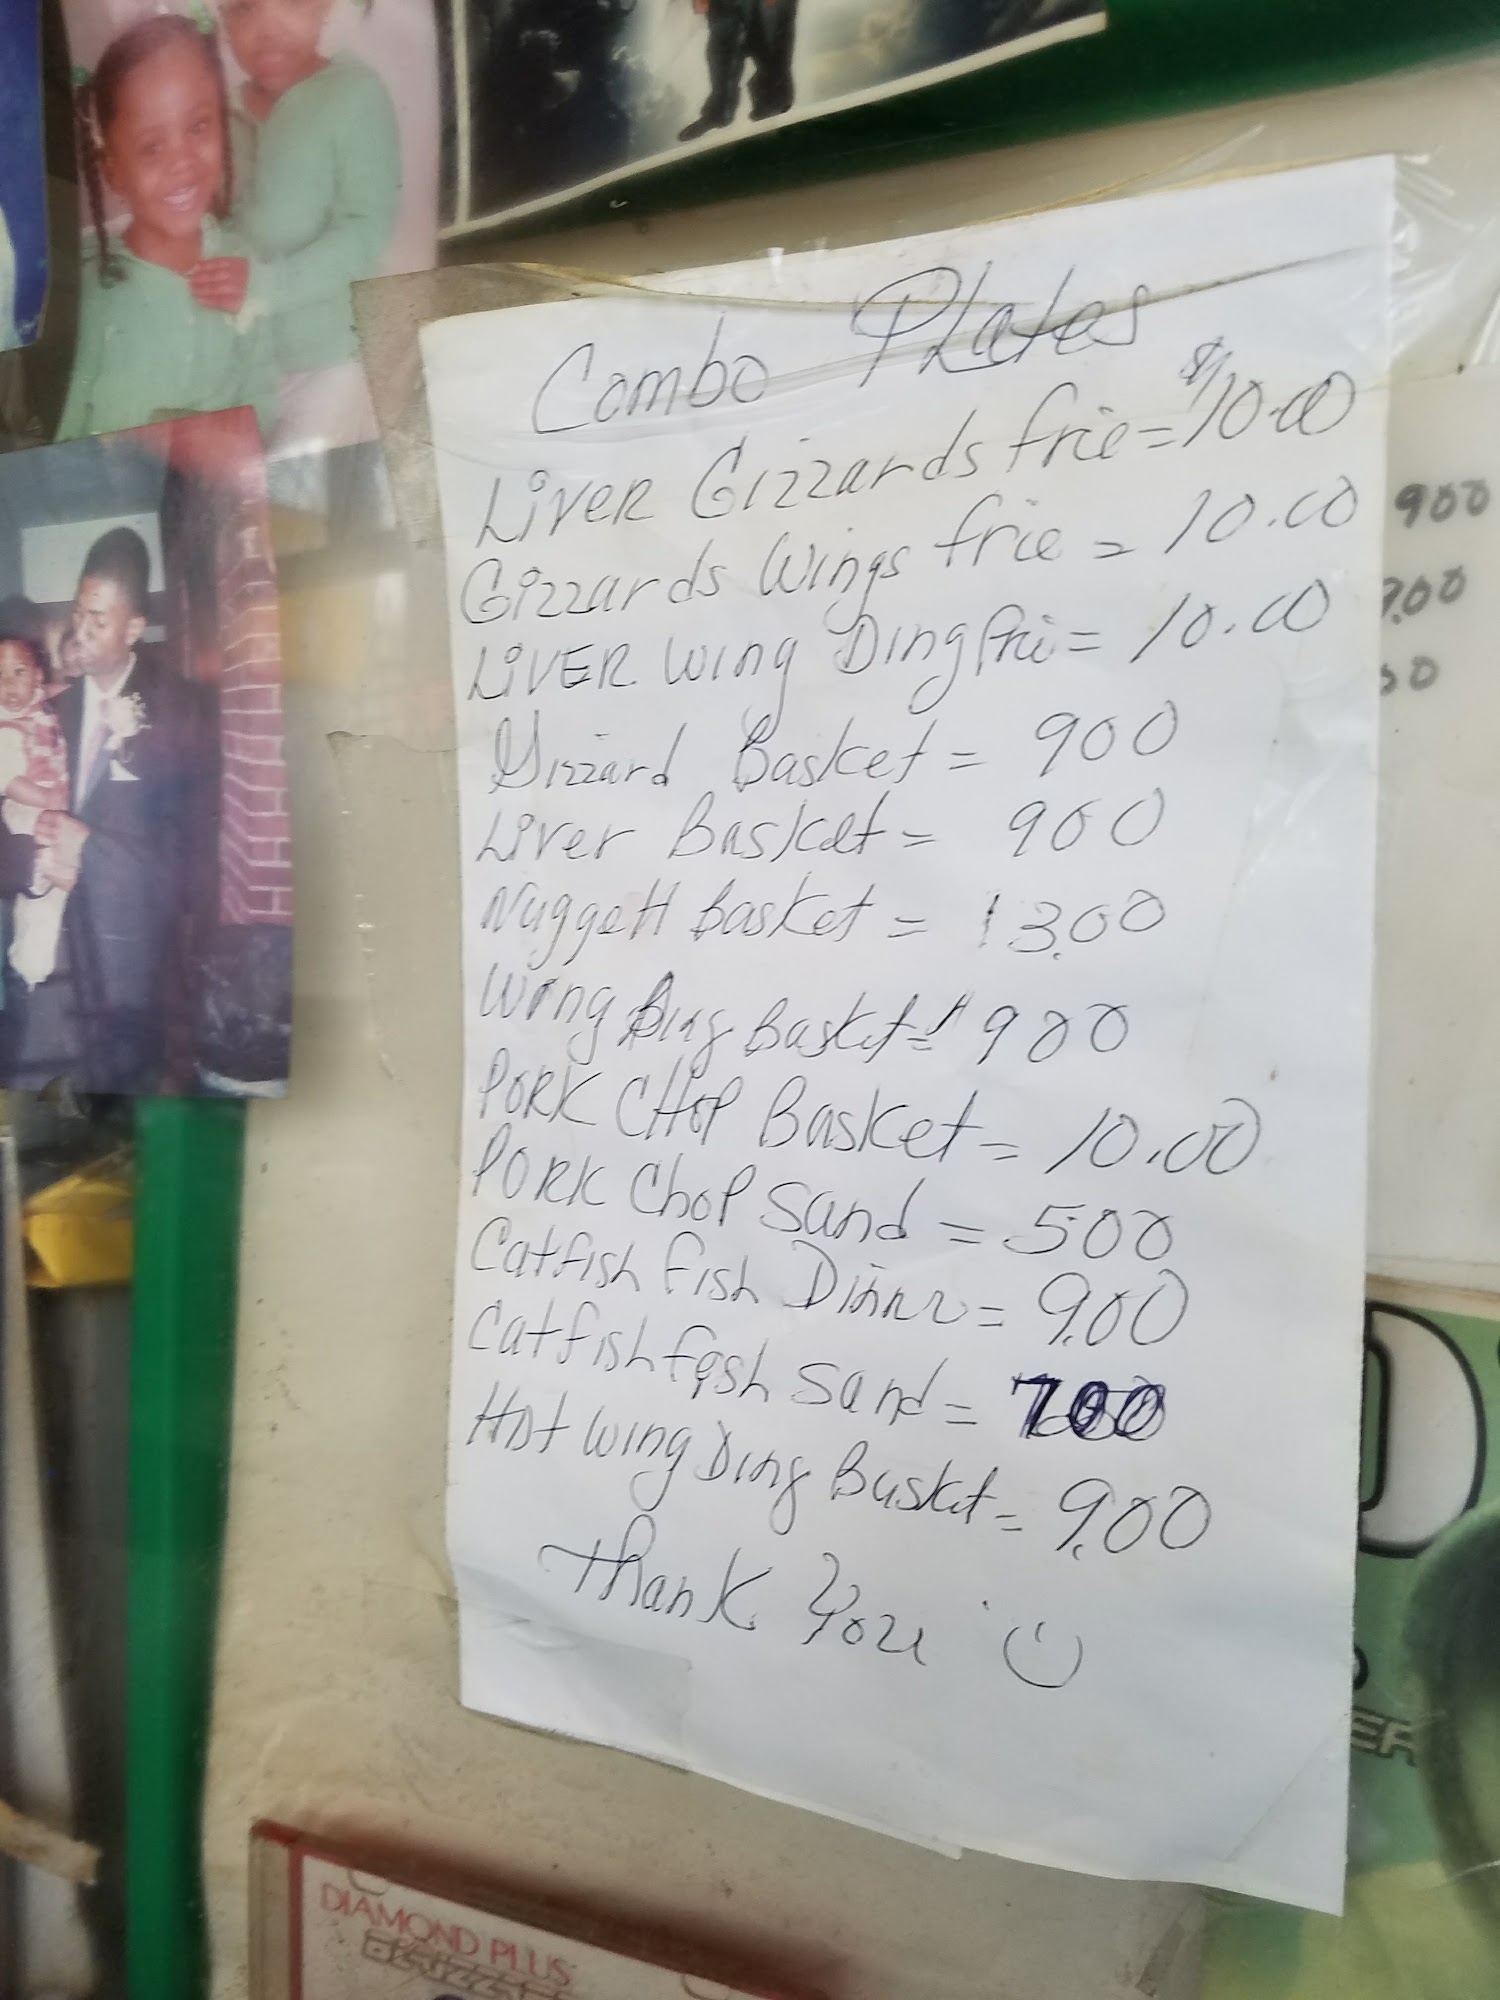 Combo Plates
Liver Gizzards frie = $10.00
Gizzards Wings frie = 10.00
LIVER Wing Ding frie = 10.00
Gizzard Basket = 900
Liver Basket = 900
Nuggett Basket = 13.00
Wing Ding Basket = $900
PORK CHOP Basket = 10.00
PORK Chop Sand = 500
Catfish Fish Dinnr = 9.00
Catfish Fish Sand = 700
Hot Wing Ding Basket = 9.00
Thank You
900
00
DIAMOND PLUS